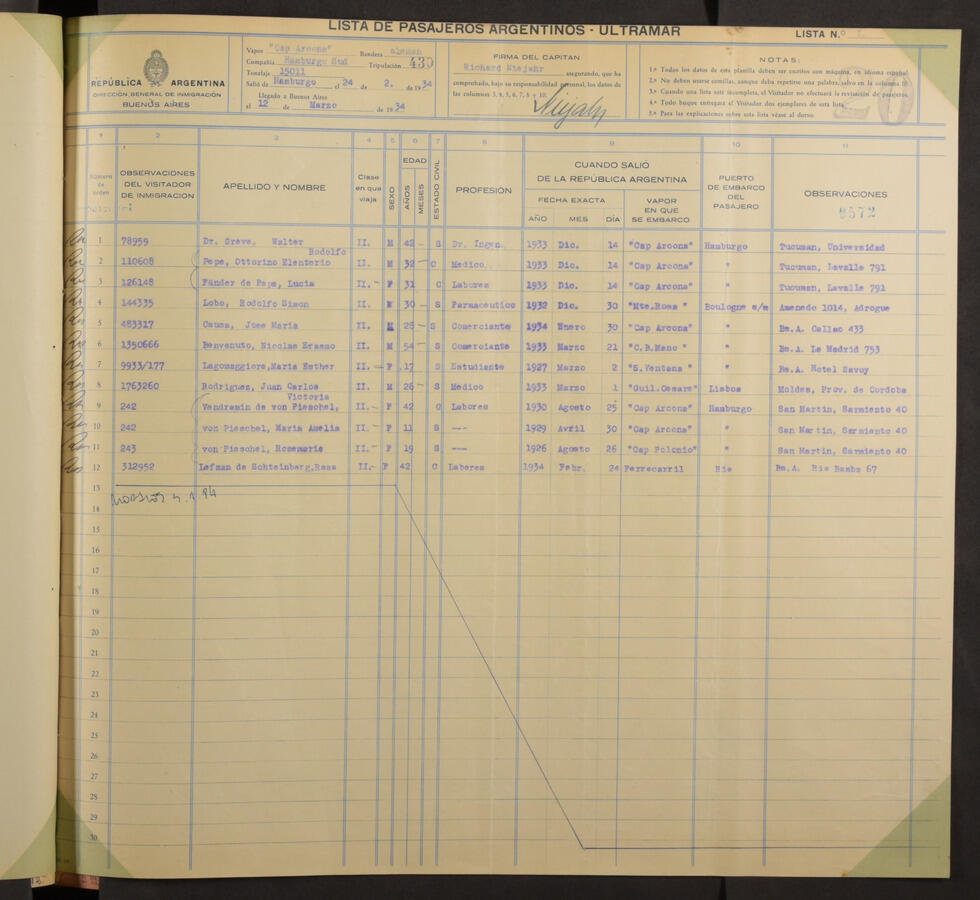 LISTA DE PASAJEROS ARGENTINOS - ULTRAMAR
LISTA N.º
REPÚBLICA ARGENTINA
DIRECCIÓN GENERAL DE INMIGRACIÓN
BUENOS AIRES
Vapor "Cap Arcona" Bandera aleman
Compañía Hamburgo Sud Tripulación 430
Tonelaje 15011
Salió de Hamburgo el 24 de 2. de 1934
Llegado a Buenos Aires
el 12 de Marzo de 1934
FIRMA DEL CAPITAN
Richard Niejahr asegurando, que ha
comprobado, bajo su responsabilidad personal, los datos de
las columnas 3, 4, 5, 6, 7, 8 y 10.
Niejahr
NOTAS:
1.ª Todos los datos de esta planilla deben ser escritos con máquina, en idioma español
2.ª No deben usarse comillas, aunque deba repetirse una palabra, salvo en la columna 10.
3.ª Cuando una lista esté incompleta, el Visitador no efectuará la revisación de pasajeros.
4.ª Todo buque entregará al Visitador dos ejemplares de esta lista
5.ª Para las explicaciones sobre esta lista véase al dorso.
20
1 2 3 4 5 6 7 8 9 10 11
Número de orden
OBSERVACIONES DEL VISITADOR DE INMIGRACION
APELLIDO Y NOMBRE
Clase en que viaja
SEXO
EDAD
AÑOS
MESES
ESTADO CIVIL
PROFESIÓN
CUANDO SALIÓ
DE LA REPÚBLICA ARGENTINA
FECHA EXACTA
AÑO MES DÍA
VAPOR EN QUE SE EMBARCO
PUERTO DE EMBARCO DEL PASAJERO
OBSERVACIONES
9572
1 78959 Dr. Greve, Walter II. M 42 - S Dr. Ingen. 1933 Dic. 14 "Cap Arcona" Hamburgo Tucuman, Universidad
Rodolfo
2 110608 Pepe, Ottorino Elenterio II. M 32 - C Medico. 1933 Dic. 14 "Cap Arcona" " Tucuman, Lavalle 791
3 126148 Fänder de Pepe, Lucia II. - F 31 C Labores 1933 Dic. 14 "Cap Arcona" " Tucuman, Lavalle 791
4 144335 Lobo, Rodolfo Simon II. M 30 - S Farmaceutico 1932 Dic. 30 "Mte. Rosa" Boulogne s/m Amenedo 1014, Adrogue
5 483317 Causa, Jose Maria II. M 28 - S Comerciante 1934 Enero 30 "Cap Arcona" " Bs.A. Callao 433
6 1350666 Benvenuto, Nicolas Erasmo II. M 54 - S Comerciante 1933 Marzo 21 "C.B.Mano " " Bs.A. La Madrid 753
7 9933/177 Lagomaggiore,Maria Esther II. - F .17 S Estudiante 1927 Marzo 2 "S.Ventana " " Bs.A. Hotel Savoy
8 1763260 Rodriguez, Juan Carlos II. M 26 - S Medico 1933 Marzo 1 "Guil.Cesare" Lisboa Moldes, Prov. de Cordoba
Victoria
9 242 Vendramin de von Pieschel, II. - F 42 C Labores 1930 Agosto 25 "Cap Arcona" Hamburgo San Martin, Sarmiento 40
10 242 von Pieschel, Maria Amelia II. - F 11 S --- 1929 Avril 30 "Cap Arcona" " San Martin, Sarmiento 40
11 243 von Pieschel, Rosemarie II. - F 19 S --- 1926 Agosto 26 "Cap Polonio" " San Martin, Sarmiento 40
12 312952 Lefman de Schteinberg,Rosa II. - F 42 C Labores 1934 Febr. 24 Ferrocarril Rio Bs.A. Rio Bamba 67
13
14
15
16
17
18
19
20
21
22
23
24
25
26
27
28
29
30